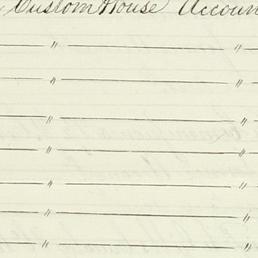 Custom House Accoun
〃 〃
〃 〃
〃 〃
〃 〃
〃 〃
〃 〃
〃 〃